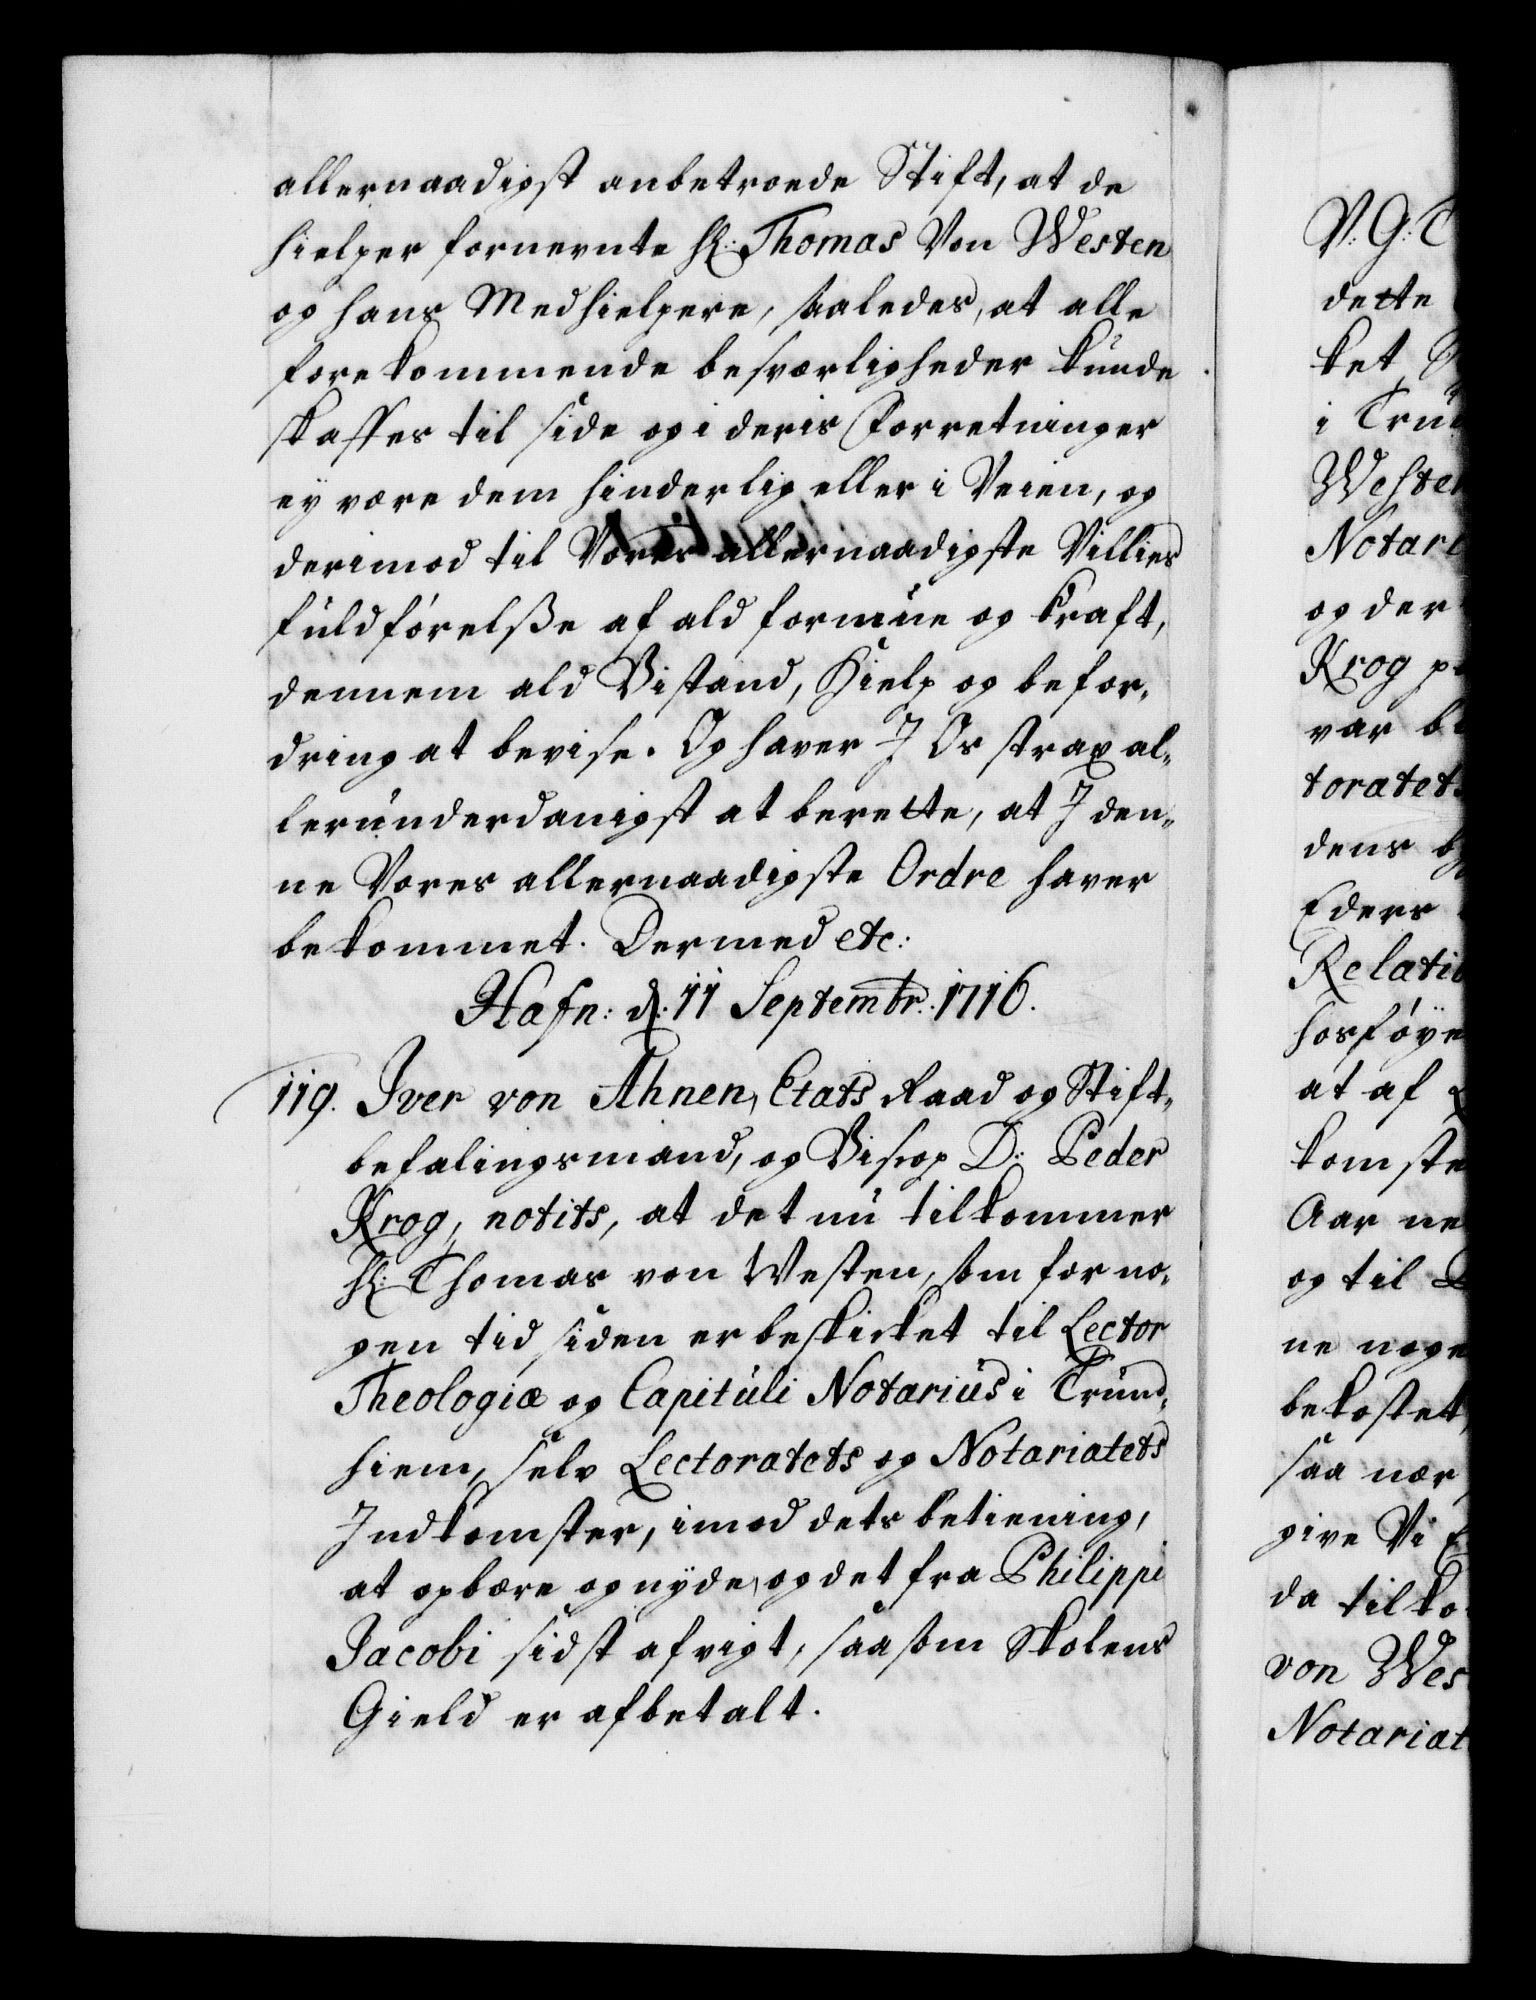 allernaadigst anbetroede Stift, at de
hielper fornevnte Hr: Thomas Von Westen
og hans Medhielpere, saaledes, at alle
forekommende besværligheder kunde
skaffes til side og i deris Forretninger
ey være dem hinderlig eller i Veien, og
derimod til Vores allernaadigste Villies
fuldførelsse af ald formue og kraft,
dennem ald Bistand, Hielp og befor„
dring at bevise. Og haver J Os strax al„
lerunderdanigst at berette, at J den„
ne Vores allernaadigste Ordre haver
bekommet. Dermed etc:
Hafn: d: 11 Septembr: 1716.
119. Iver von Ahnen, Etats Raad og Stift„
befalingsmand, og Biscop D: Peder
Krog, notits, at det nu tilkommer
Hr: Thomas von Westen, som for no„
gen tid siden er beskicket til Lector
Theologiæ og Capituli Notarius i Trund„
hiem, selv Lectoratets og Notariatets
Indkomster, imod dets betiening,
at opbære og nyde, og det fra Philippi
Jacobi sidst afvigt, saasom Skolens
Gield er afbetalt.
V: G: T
dette
ket
i Tru
Westen
Notari
og der
Krog p
var b
toratets
dens
Eders
Relatio
hosføye
at af
komste
Aar ne
og til
ne noge
bekostet
saa nær
give Vi E
da tilko
von Wes
Notariat